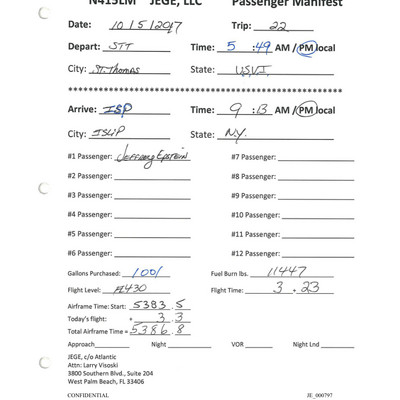 N415LM JEGE, LLC Passenger Manifest
Date: 10/5/2017 Trip: 22
Depart: STT Time: 5 :49 AM / PM local
City: St. Thomas State: USVI
********************************************************
Arrive: ISP Time: 9 :13 AM / PM local
City: ISLIP State: N.Y.
#1 Passenger: Jeffrey Epstein #7 Passenger:
#2 Passenger: #8 Passenger:
#3 Passenger: #9 Passenger:
#4 Passenger: #10 Passenger:
#5 Passenger: #11 Passenger:
#6 Passenger: #12 Passenger:
Gallons Purchased: 1001 Fuel Burn lbs. 11447
Flight Level: FL430 Flight Time: 3 . 23
Airframe Time: Start: 5383.5
Today's flight: + 3.3
Total Airframe Time = 5386.8
Approach Night VOR Night Lnd
JEGE, c/o Atlantic
Attn: Larry Visoski
3800 Southern Blvd., Suite 204
West Palm Beach, FL 33406
CONFIDENTIAL JE_000797